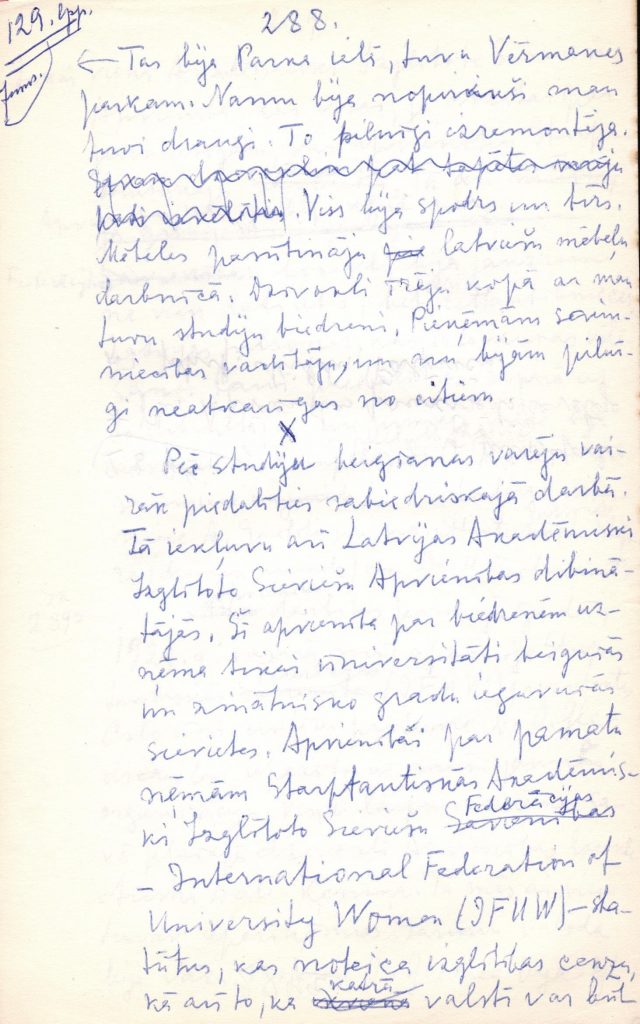 129. lpp.
288.
← Tas bija Parka ielā, tuvu Vērmanes
parkam. Namu bija nopirkuši man
tuvi draugi. To pilnīgi izremontēja.
Viss bija spodrs un tīrs.
Mēbeles pasūtināju latviešu mēbeļu
darbnīcā. Dzīvokli īrēju kopā ar manu
tuvu studiju biedreni. Pieņēmām saim-
niecības vadītāju, un nu bijām pilnī-
gi neatkarīgas no citiem
X
Pēc studiju beigšanas varēju vai-
rāk piedalīties sabiedriskajā darbā.
Tā iekļuvu arī Latvijas Akadēmiski
Izglītoto Sieviešu Apvienības dibinā-
tājās. Šī apvienība par biedrenēm uz-
ņēma tikai ūniversitāti beigušās
un zinātnisko gradu ieguvušās
sievietes. Apvienībai par pamatu
ņēmām Starptautiskās Akadēmis-
ki Izglītoto Sieviešu Savienības Federācijas
– International Federation of
University Women (IFUW) – sta-
tūtus, kas noteica izglītības cenzu,
kā arī to, ka katrā valstī var būt